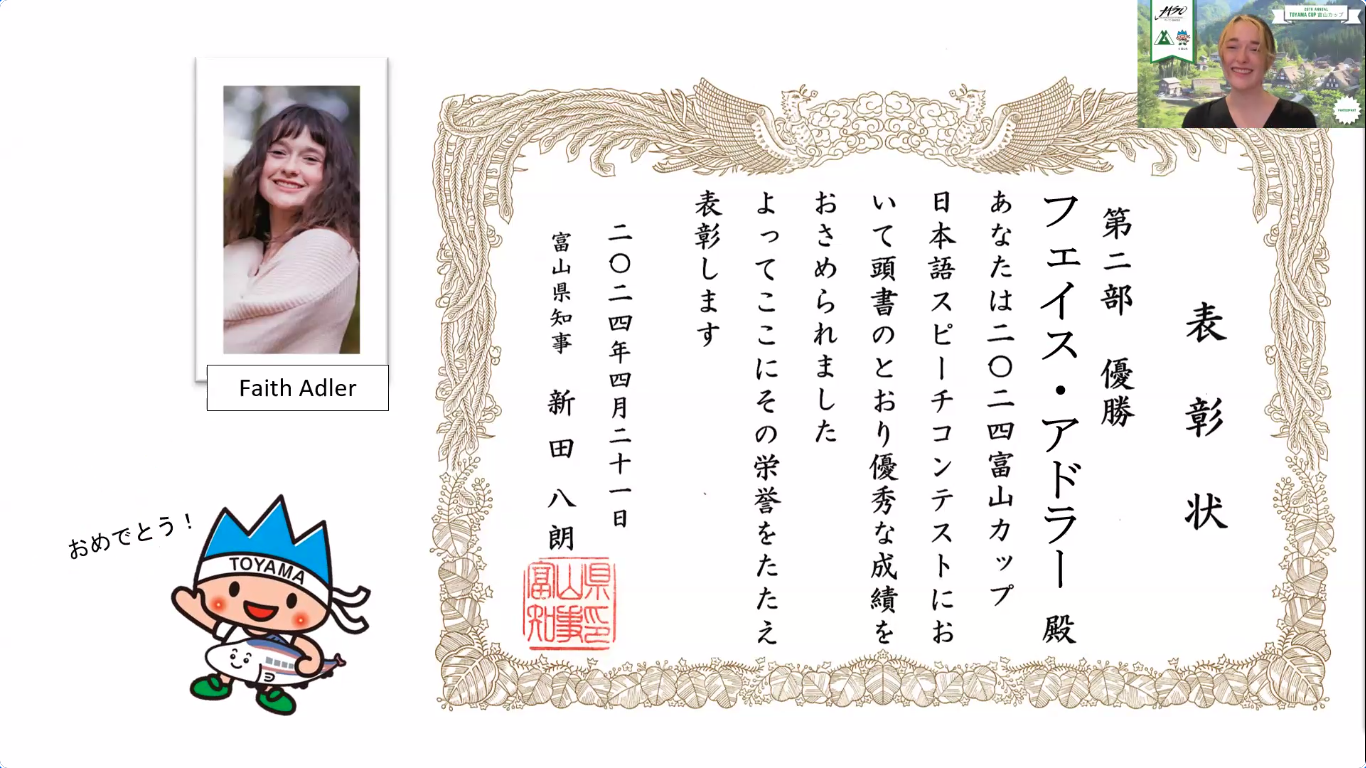 表彰状
第二部 優勝
フェイス・アドラー 殿
あなたは二〇二四富山カップ
日本語スピーチコンテストにお
いて頭書のとおり優秀な成績を
おさめられました
よってここにその栄誉をたたえ
表彰します
二〇二四年四月二十一日
富山県知事 新田八朗
富山県知事印
Faith Adler
おめでとう！
TOYAMA
TOYAMA CUP 富山カップ